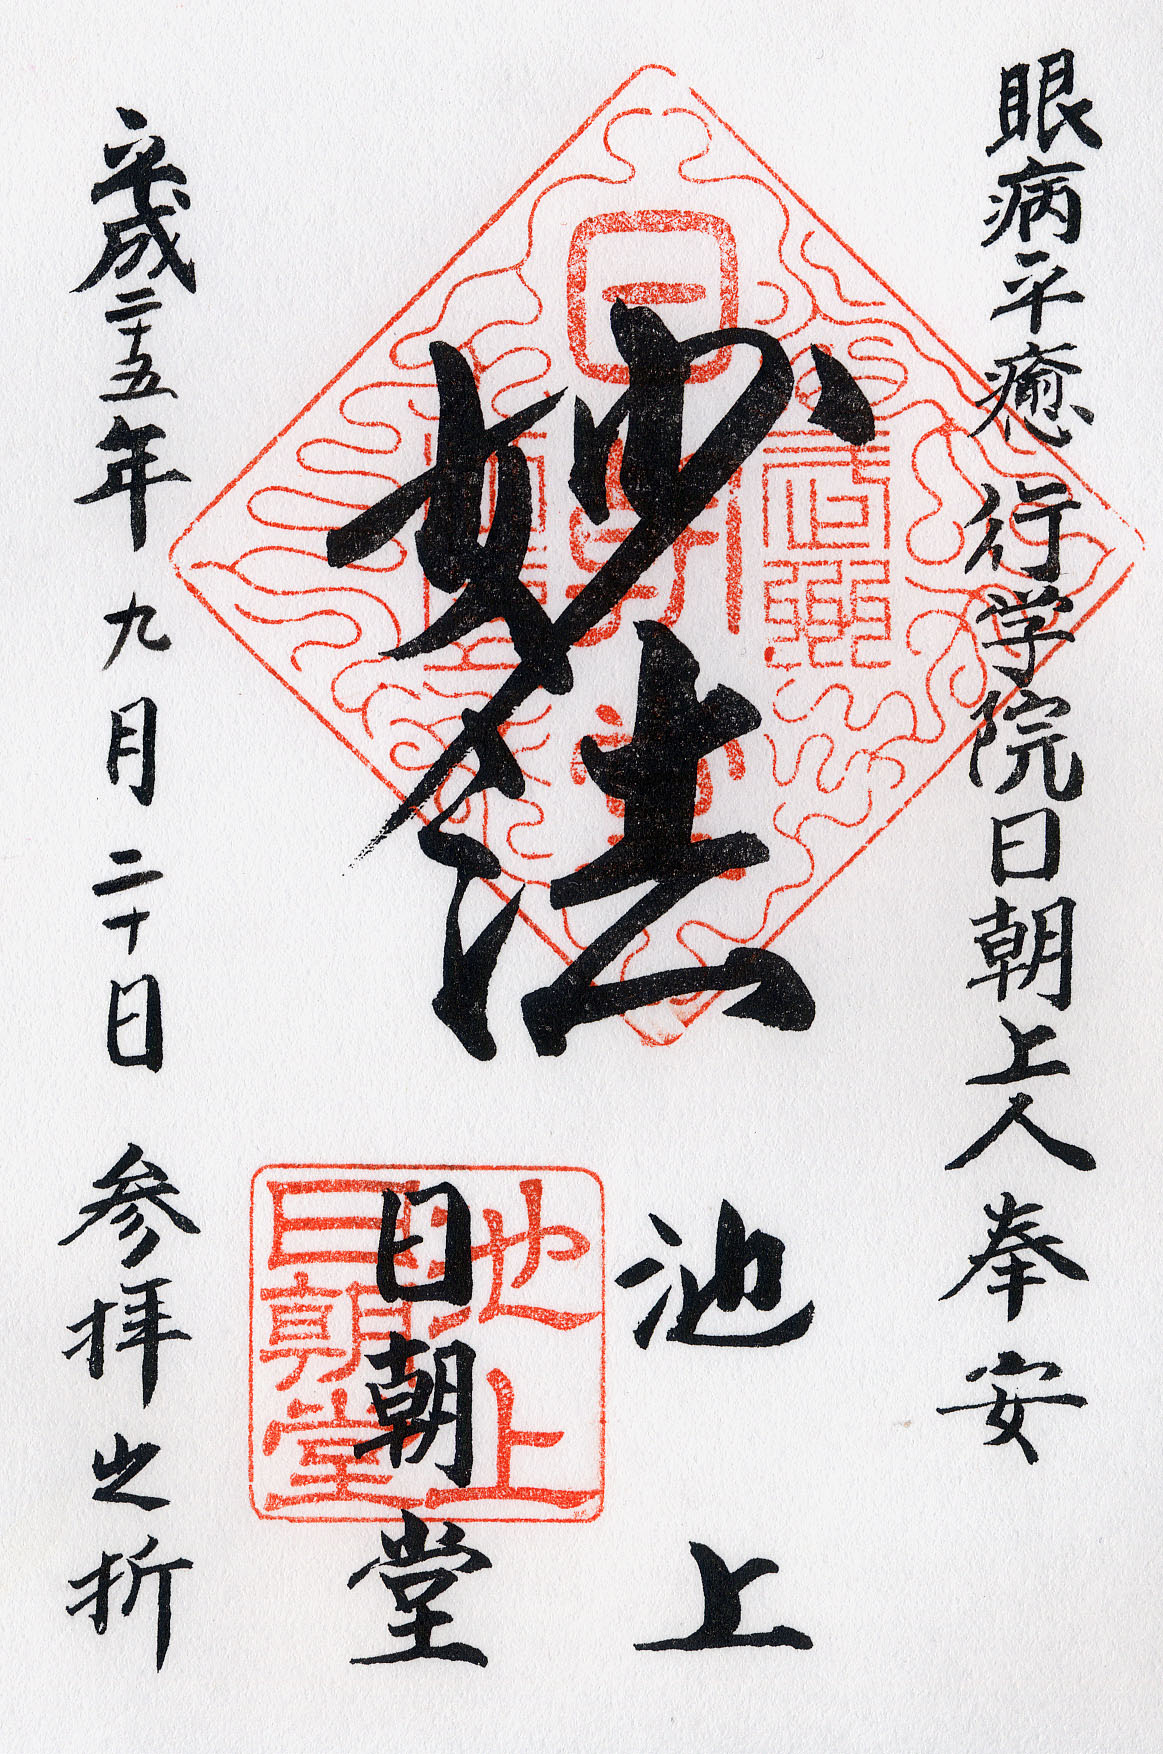 眼病平癒 行学院日朝上人 奉安
妙法
池上
日朝堂
平成二十五年 九月 二十日 参拝之折
池上
日朝堂